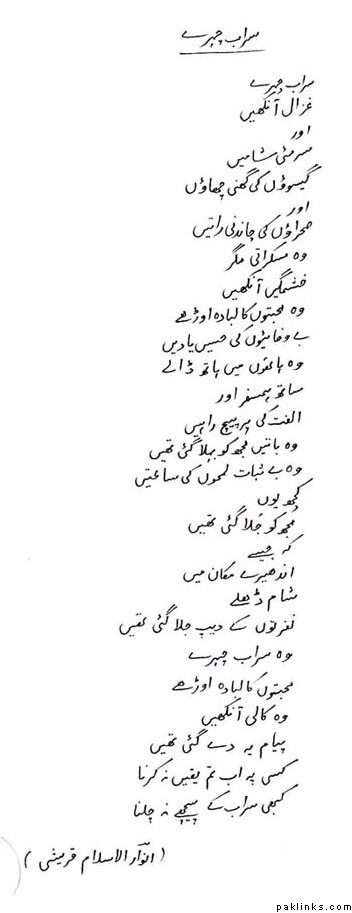 سراب چہرے
سراب چہرے
غزال آنکھیں
اور
سرمئی شامیں
گیسوؤں کی گھنی چھاؤں
اور
صحراؤں کی چاندنی راتیں
وہ مسکراتی مگر
خشمگیں آنکھیں
وہ محبتوں کا لبادہ اوڑھے
بے وفائیوں کی حسیں یادیں
وہ ہاتھوں میں ہاتھ ڈالے
ساتھ ہمسفر اور
الفت کی پر پیچ راہیں
وہ باتیں مجھ کو بہلا گئی تھیں
وہ بے ثبات لمحوں کی ساعتیں
کچھ یوں
مجھ کو جلا گئی تھیں
کہ جیسے
اندھیرے مکان میں
شام ڈھلے
نفرتوں کے دیپ جلا گئی تھیں
وہ سراب چہرے
محبتوں کا لبادہ اوڑھے
وہ کالی آنکھیں
پیام یہ دے گئی تھیں
کسی پہ اب تم یقیں نہ کرنا
کبھی سراب کے پیچھے نہ چلنا
(انوار الاسلام قریشی)
paklinks.com